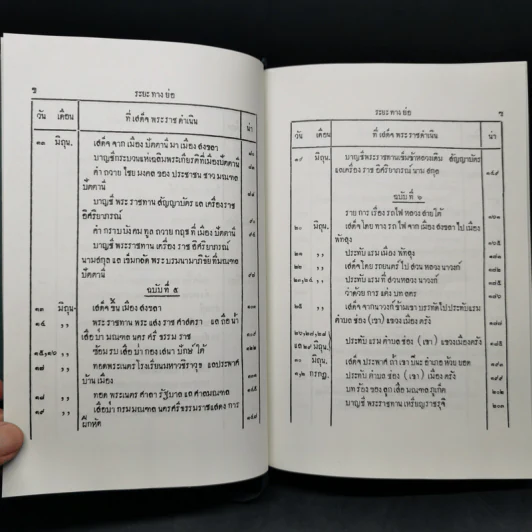 ช
ระยะ ทาง ย่อ
วัน เดือน ที่ เสด็จ พระ ราช ดำเนิน น่า
๑๓ มิถุน. เสด็จ จาก เมือง ปัตตานี มา เมือง สงขลา
บาญชีกระบวนแห่เฉลิมพระเกียรติที่เมืองปัตตานี
คำ ถวาย ไชย มงคล ของ ประชาชน ชาว มณฑล
ปัตตานี
บาญชี พระ ราชทาน สัญญาบัตร แล เครื่องราช
อิศริยาภรณ์
คำ กราบ บังคม ทูล ถวาย ที่ เมือง ปัตตานี
บาญชี พระราชทาน เครื่อง ราช อิศริยาภรณ์
นามสกุล แล เข็มกลัด พระ บรมนามาภิธัยที่มณฑล
ปัตตานี
ฉบับ ที่ ๕
๑๓ มิถุน. เสด็จ ขึ้น เมือง สงขลา
๑๔ ,, พระราชทาน พระ แสง ราช ศาสตรา แล ถือ น้ำ
เสือป่า มณฑล นคร ศรี ธรรม ราช
๑๕,๑๖ ,, ซ้อม รบ เสือ ป่า กอง เสนา รักษ ใต้
๑๗ ,, ทอดพระเนตร โรงเรียนมหาวชิราวุธ แล
บ้าน เมือง
๑๘ ,, ทอด พระเนตร ศาลา รัฐบาล แล ศาลมณฑล
๑๙ ,, เสือป่า กรม มณฑล นครศรีธรรมราชแสดง การ
ฝึกหัด
ระยะ ทาง ย่อ
วัน เดือน ที่ เสด็จ พระ ราช ดำเนิน น่า
๑๙ มิถุน. บาญชีพระราชทานเข็มข้าหลวงเดิม สัญญาบัตร
แลเครื่อง ราช อิศริยาภรณ์ นาม สกุล ๑๕๙
ฉบับ ที่ ๖
ราย การ เรื่อง รถไฟ หลวง สายใต้ ๑๖๑
๒๐ มิถุน. เสด็จ โดย ทาง รถไฟ จาก เมือง สงขลา ไป เมือง
พัทลุง ๑๖๕
๒๑ ,, ประทับ แรม เมือง พัทลุง
๒๒ ,, เสด็จ โดย รถยนตร์ ไป สวน หลวง
๒๓,๒๔ ,, ประทับ แรม ที่ สวนหลวง
ว่าด้วย การ แต่ง บท ลคร
๒๕ ,, เสด็จ จาก ข้ามเขา บรรทัดไปประทับแรม
ตำบล ช่อง (เขา) แขวงเมือง ตรัง
๒๖,๒๗,๒๘
แล ๒๙ มิถุน. ประทับแรม ตำบล ช่อง (เขา) แขวงเมืองตรัง
๓๐ มิถุน. เสด็จ ประพาศ ถ้ำ เขา ปินะ อำเภอ ห้วย ยอด
๑,๒ กรกฎ. ประทับ ตำบล ช่อง (เขา) เมือง ตรัง
บท ร้อง ของ ลูกเสือ มณฑล ภูเก็ต
บาญชี พระราชทาน เหรียญราชรุจิ